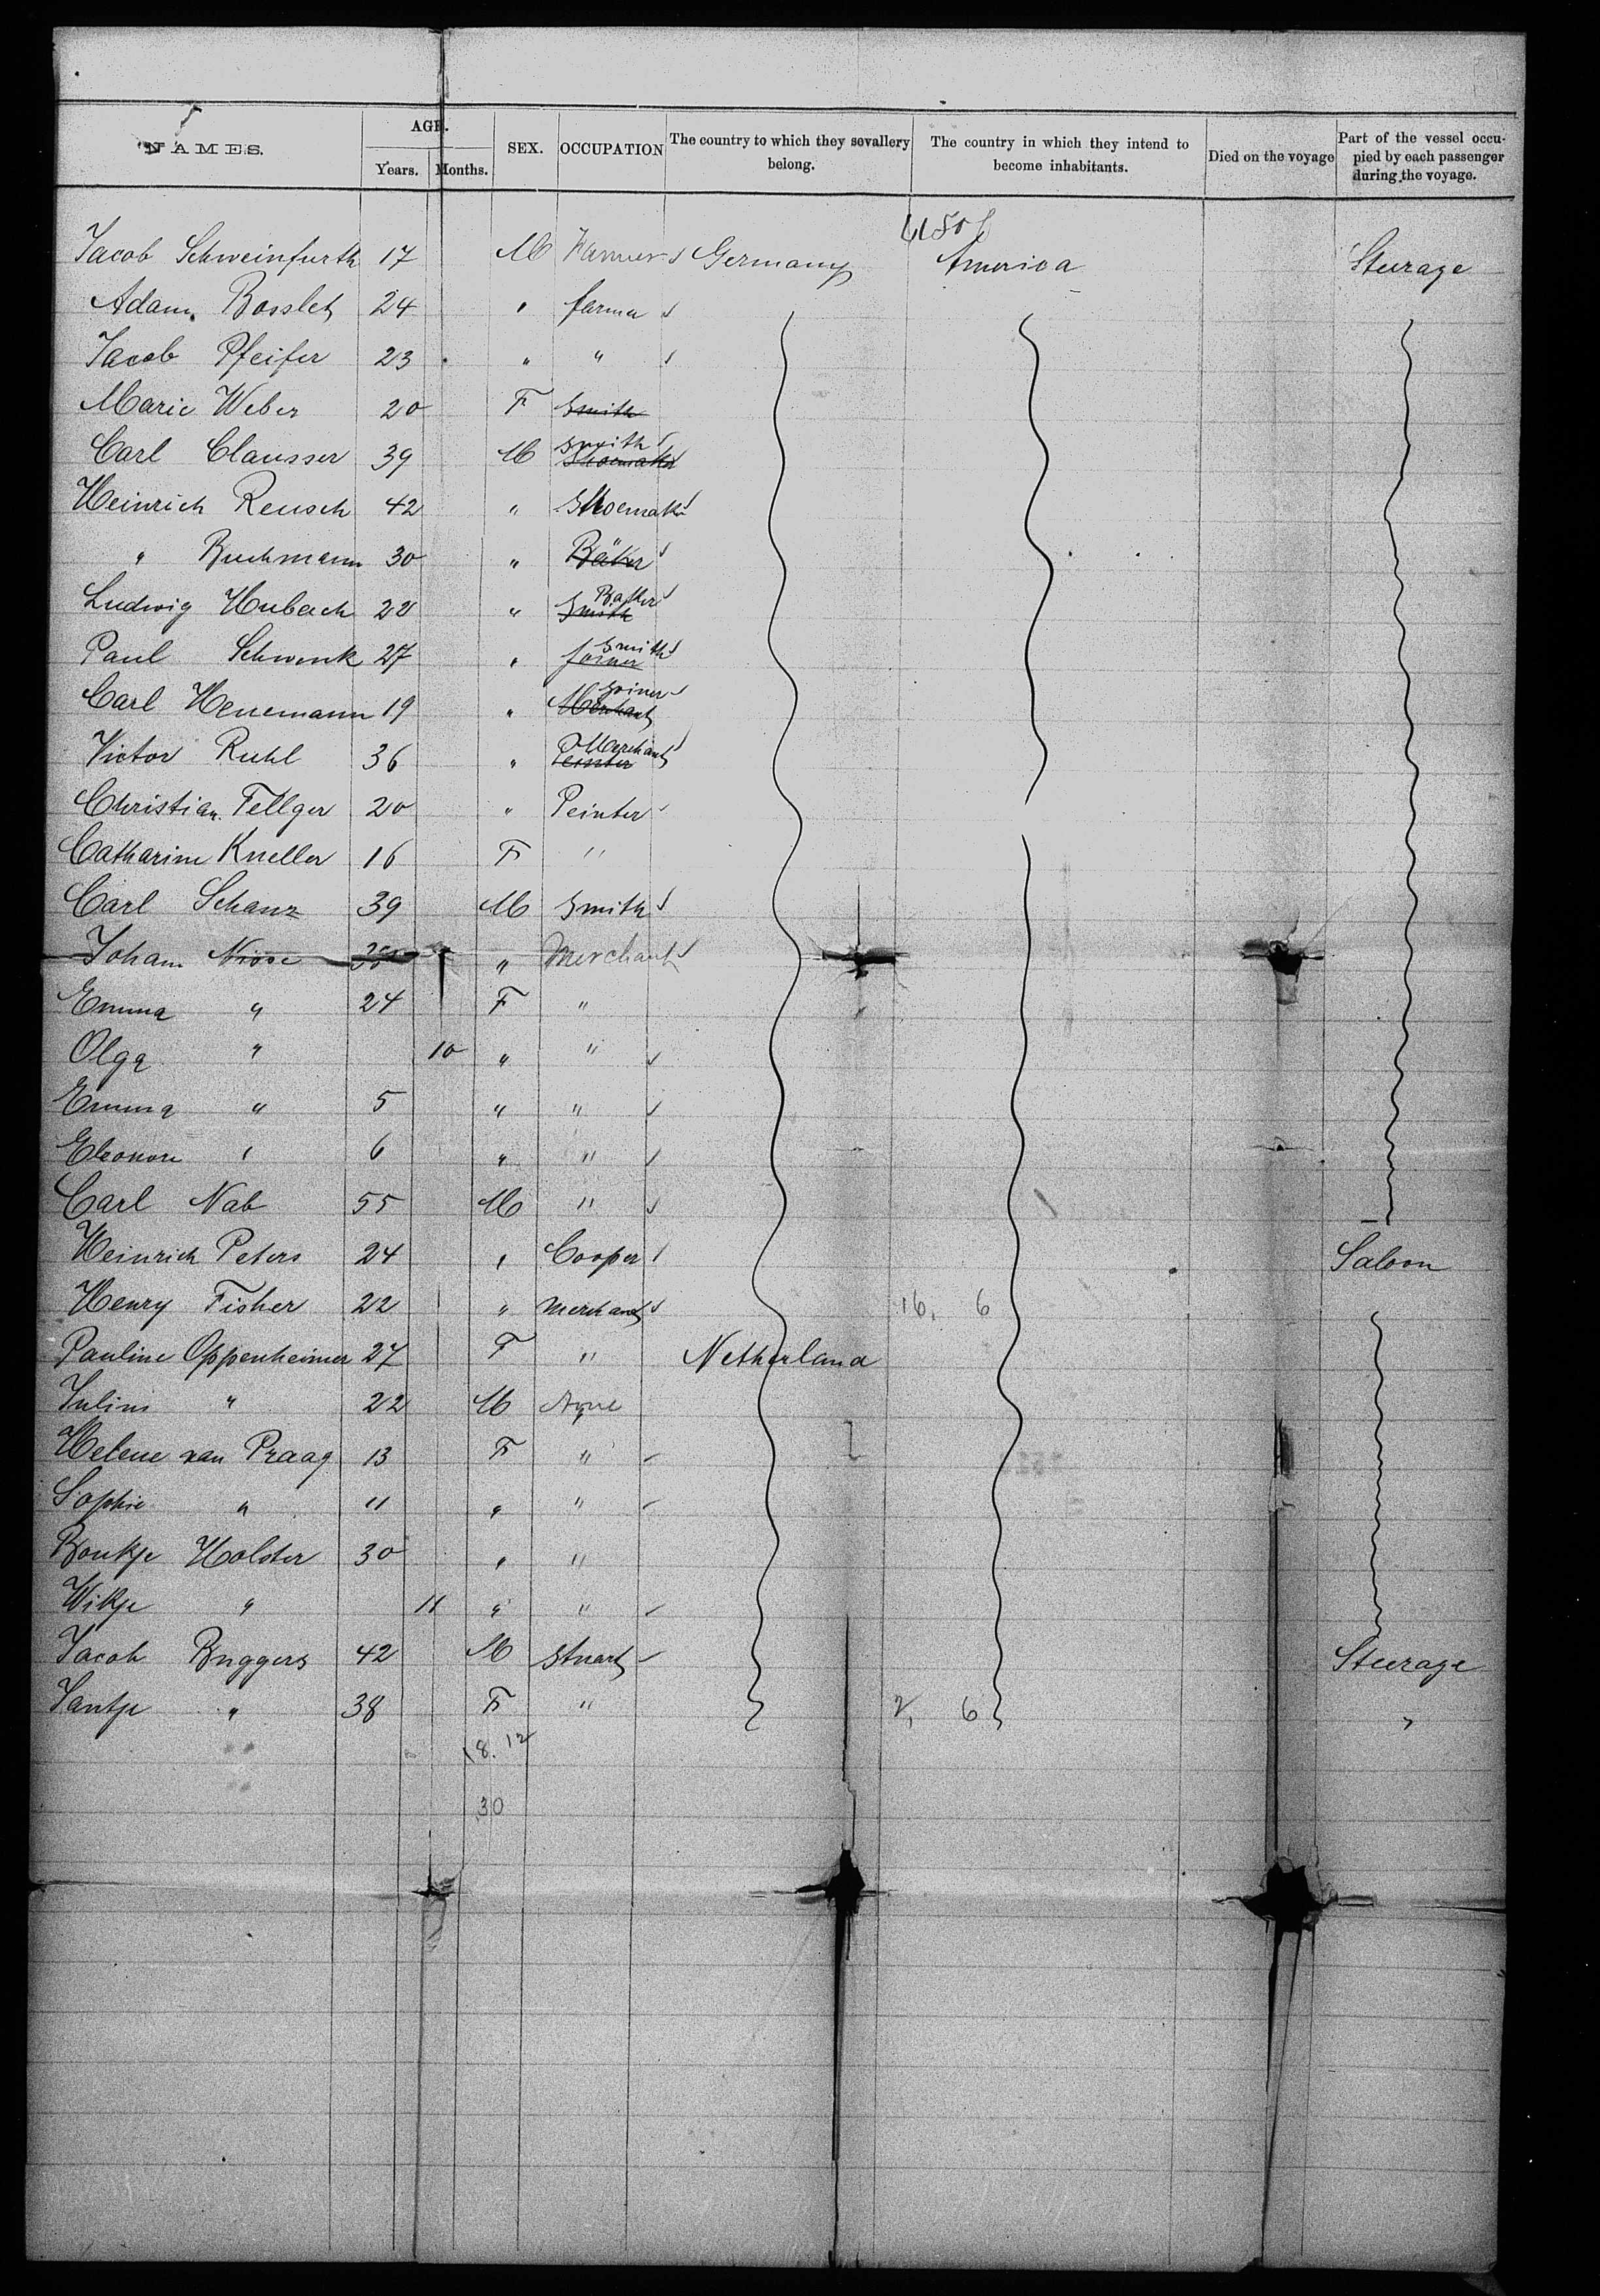 NAMES. AGE. Years. Months. SEX. OCCUPATION The country to which they sevallery belong. The country in which they intend to become inhabitants. Died on the voyage Part of the vessel occupied by each passenger during the voyage.
Jacob Schweinfurth 17 M Farmer Germany America Steerage
Adam Bosslet 24 " farmer
Jacob Pfeifer 23 " "
Marie Weber 20 F Smith
Carl Clausser 39 M Shoemaker Smith
Heinrich Reusch 42 " Shoemaker
" Buchmann 30 " Bäker
Ludwig Hubach 22 " Smith Baker
Paul Schwenk 27 " Joiner Smith
Carl Henemann 19 " Merchant Joiner
Victor Ruhl 36 " Peinter Merchant
Christian Fellger 20 " Peinter
Catharine Kneller 16 F "
Carl Schanz 39 M Smith
Joham Nisse " Merchant
Emma " 24 F "
Olga " 10 " "
Emma " 5 " "
Eleonore " 6 " "
Carl Nab 55 M "
Heinrich Peters 24 " Cooper Saloon
Henry Fisher 22 " Merchant 16, 6
Pauline Oppenheimer 27 F " Netherland
Julius " 22 M None
Helene van Praag 13 F "
Sophie " 11 " "
Boukje Holster 30 " "
Wikje " 11 " "
Jacob Bruggers 42 M Stuart Steerage
Jantje " 38 F " 2, 6 "
18. 12
30